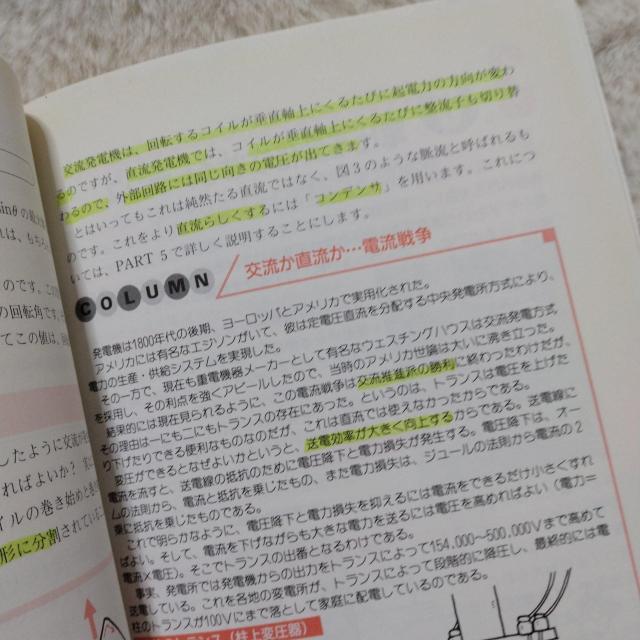 交流発電機は、回転するコイルが垂直軸上にくるたびに起電力の方向が変わ
るのですが、直流発電機では、コイルが垂直軸上にくるたびに整流子も切り替
わるので、外部回路には同じ向きの電圧が出てきます。
とはいってもこれは純然たる直流ではなく、図3のような脈流と呼ばれるも
のです。これをより直流らしくするには「コンデンサ」を用います。これにつ
いては、PART 5で詳しく説明することにします。
COLUMN
交流か直流か…電流戦争
発電機は1800年代の後期、ヨーロッパとアメリカで実用化された。
アメリカには有名なエジソンがいて、彼は定電圧直流を分配する中央発電所方式により、
電力の生産・供給システムを実現した。
その一方で、現在も重電機器メーカーとして有名なウエスチングハウスは交流発電方式
を採用し、その利点を強くアピールしたので、当時のアメリカ世論は大いに沸き立った。
結果的には現在見られるように、この電流戦争は交流推進派の勝利に終わったわけだが、
その理由は一にも二にもトランスの存在にあった。というのは、トランスは電圧を上げた
り下げたりできる便利なものなのだが、これは直流では使えなかったからである。
変圧ができるとなぜよいかというと、送電効率が大きく向上するからである。送電線に
電流を流すと、送電線の抵抗のために電圧降下と電力損失が発生する。電圧降下は、オー
ムの法則から、電流と抵抗を乗じたもの、また電力損失は、ジュールの法則から電流の2
乗に抵抗を乗じたものである。
これで明らかなように、電圧降下と電力損失を抑えるには電流をできるだけ小さくすれ
ばよい。そして、電流を下げながらも大きな電力を送るには電圧を高めればよい（電力＝
電流×電圧）。そこでトランスの出番となるわけである。
事実、発電所では発電機からの出力をトランスによって154,000～500,000Vまで高めて
送電している。これを各地の変電所が、トランスによって段階的に降圧し、最終的には電
柱のトランスが100Vにまで落として家庭に配電しているのである。
トランス（柱上変圧器）
sinθの
れは、もちろ
のです。この
の回転角です。
てこの値は、
したように交流
ればよいか？
イルの巻き始めと
形に分割されている